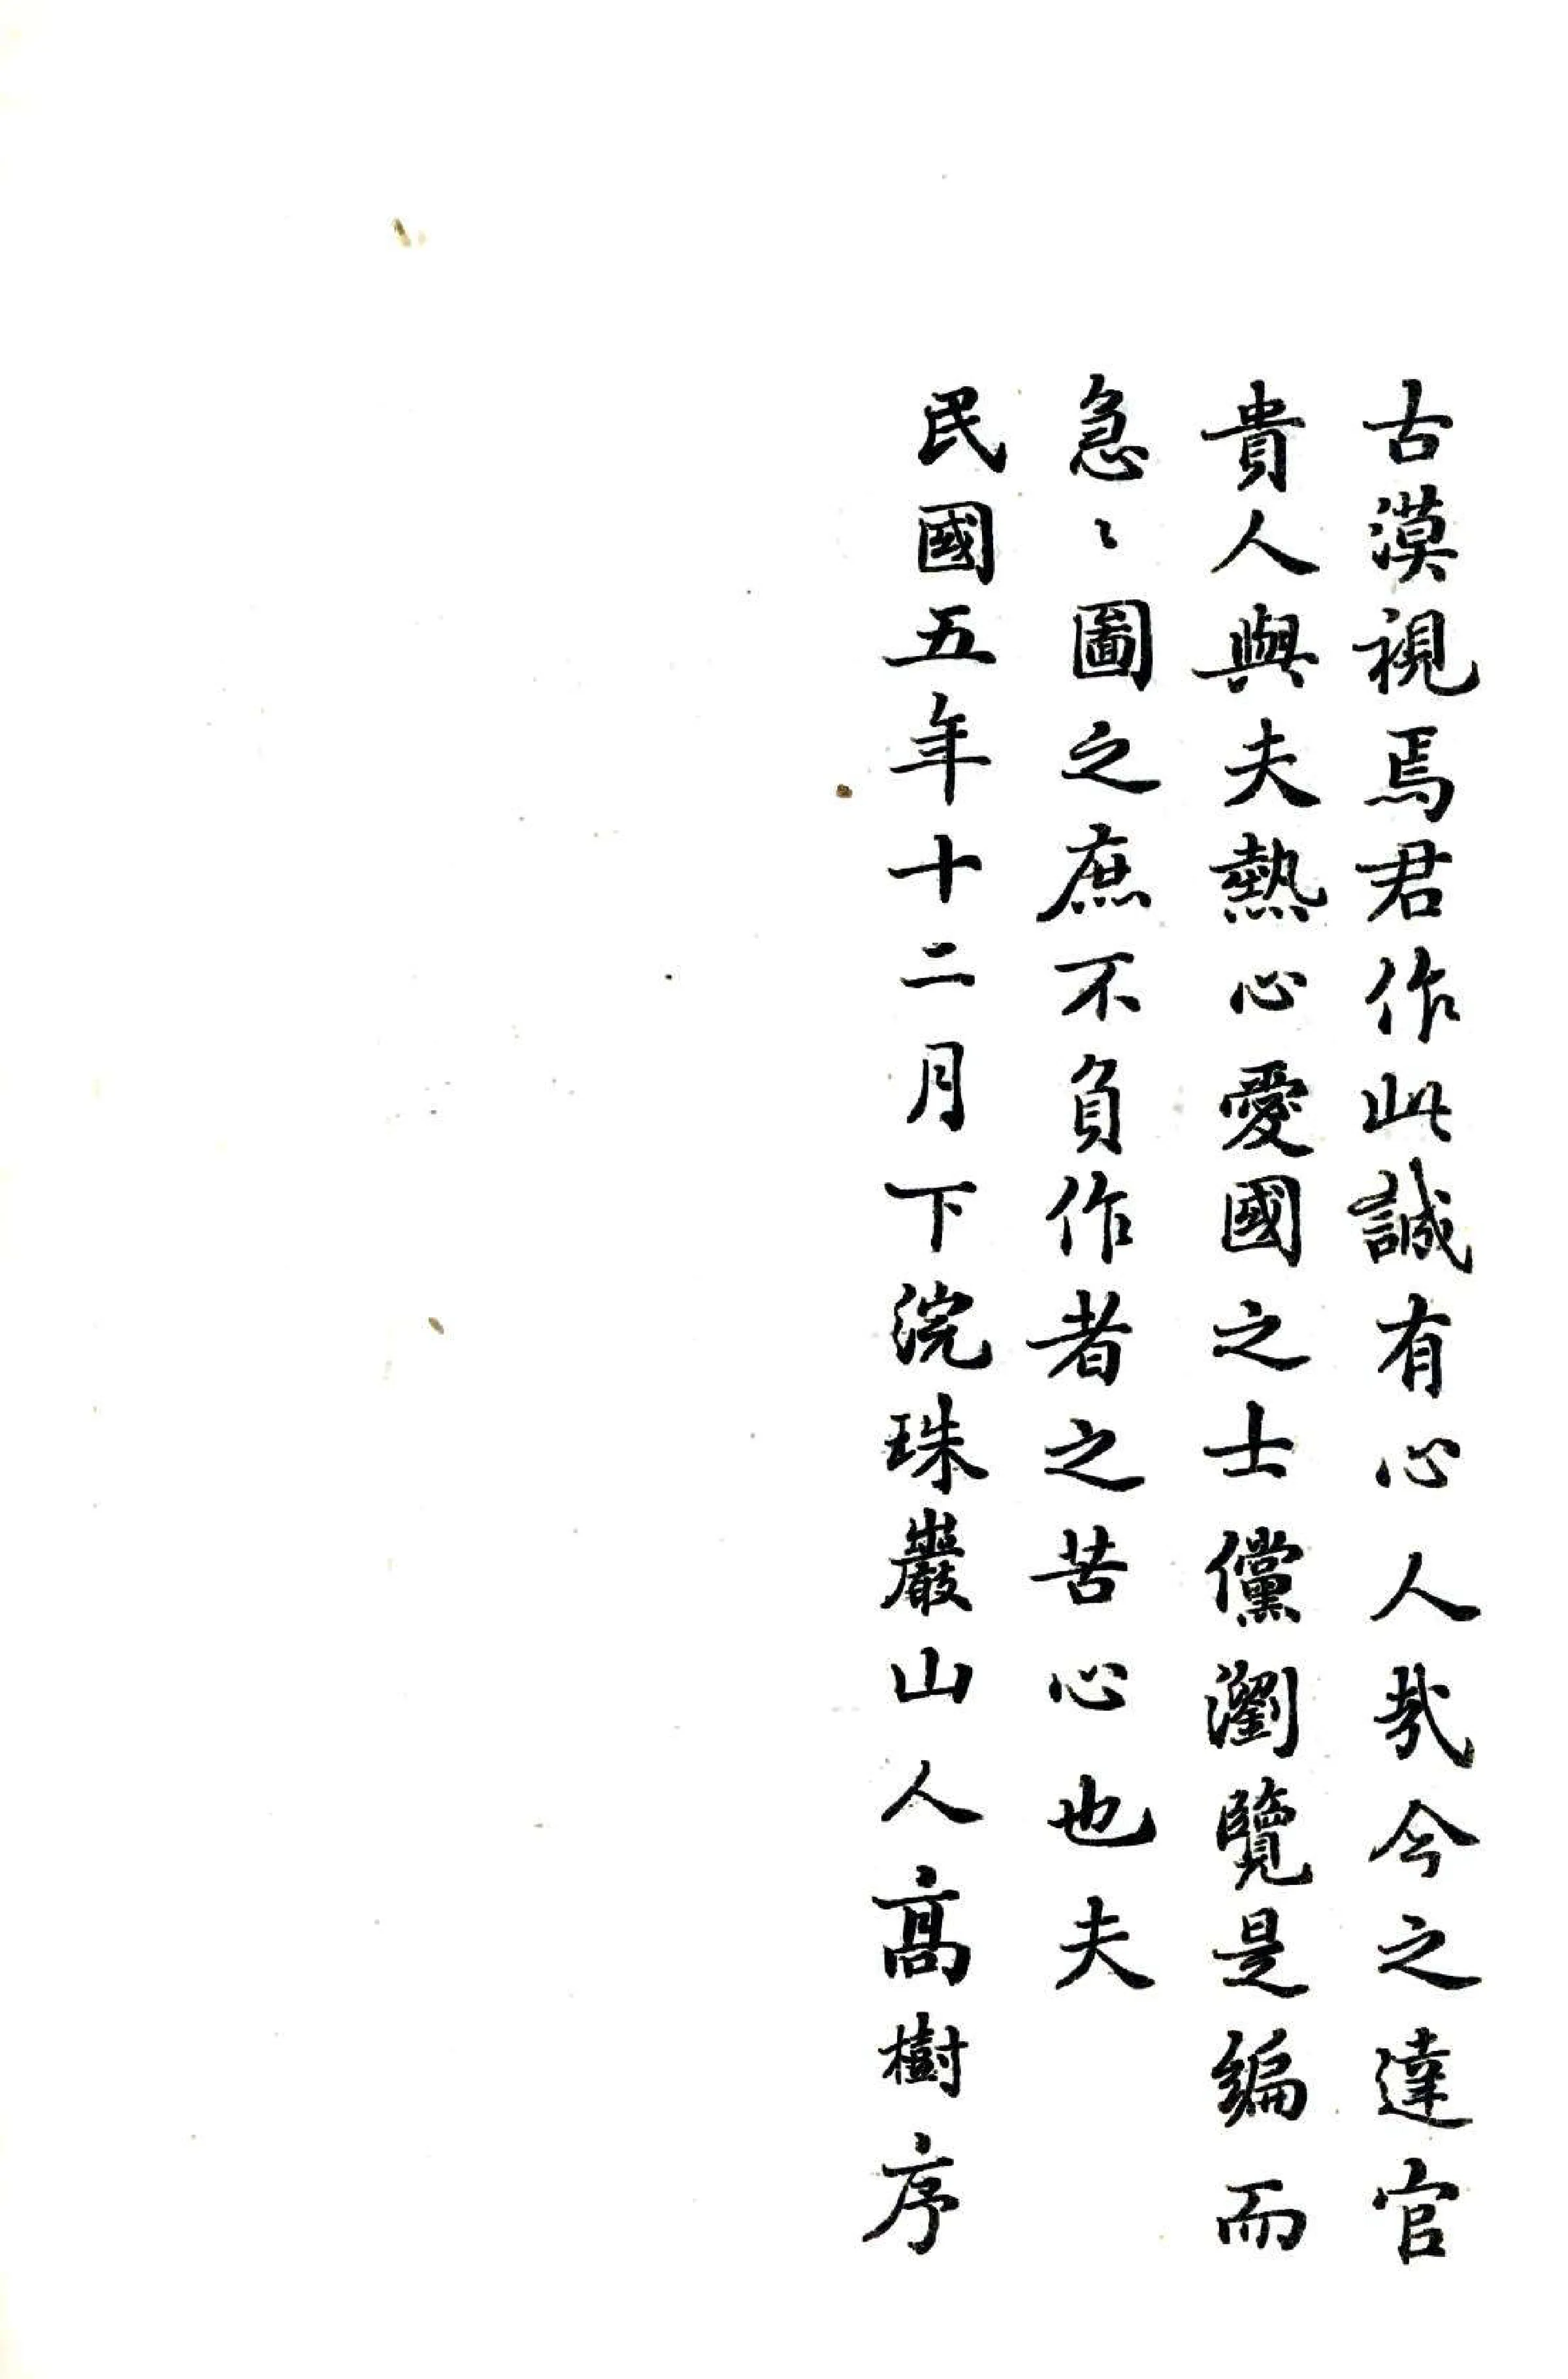 古漠視焉君作此誠有心人哉今之達官
貴人與夫熱心愛國之士儻瀏覽是編而
急〻圖之庶不負作者之苦心也夫
民國五年十二月下浣珠巖山人高樹序